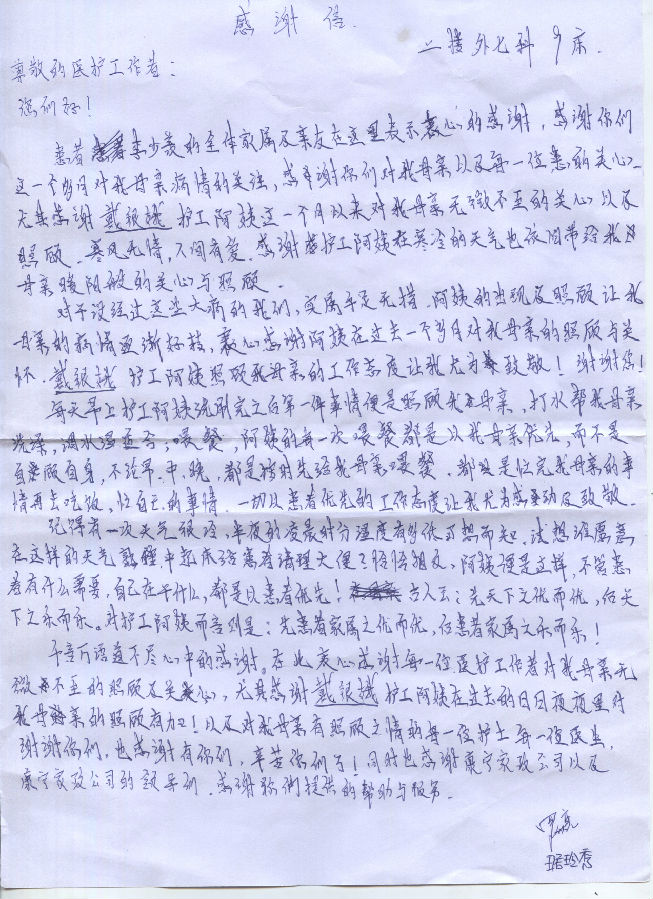 感谢信.
二楼外七科 9床.
尊敬的医护工作者:
您们好!
患者李少羡的全体家属及亲友在这里表示衷心的感谢, 感谢你们
这一个多月对我母亲病情的关注, 感谢你们对我母亲以及每一位患的关心.
尤其感谢戴银娥护工阿姨这一个月以来对我母亲无微不至的关心以及
照顾. 寒风无情, 人间有爱. 感谢护工阿姨在寒冷的天气也依旧带给我
母亲暖阳般的关心与照顾.
对于没经过这些大病的我们, 实属手足无措. 阿姨的出现及照顾让我
母亲的病情逐渐好转, 衷心感谢阿姨在过去一个多月对我母亲的照顾与关
怀. 戴银娥护工阿姨照顾我母亲的工作态度让我尤为致敬! 谢谢您!
每天早上护工阿姨洗刷完之后第一件事情便是照顾我母亲, 打水帮我母亲
洗澡, 调水温适合, 喂餐, 阿姨的每一次喂餐都是以我母亲优先, 而不是
自顾自身, 不论早. 中. 晚, 都是按时先给我母亲喂餐. 都是忙完我母亲的事
情再去吃饭, 忙自己的事情. 一切以患者优先的工作态度让我尤为感动及致敬.
记得有一次天气很冷, 半夜的凌晨时分温度有多低可想而知. 试想谁愿意
在这样的天气熟睡中起床给患者清理大便? 恰恰相反, 阿姨便是这样, 不管患
者有什么需要, 自己在干什么, 都是以患者优先! 古人云: 先天下之忧而忧, 后天
下之乐而乐. 对护工阿姨而言则是: 先患者家属之忧而忧, 后患者家属之乐而乐!
千言万语道不尽心中的感谢. 在此衷心感谢每一位医护工作者对我母亲无
微不至的照顾及关心, 尤其感谢戴银娥护工阿姨在过去的日日夜夜里对
我母亲的照顾有加! 以及对我母亲有照顾之情的每一位护士每一位医生,
谢谢你们, 也感谢有你们, 辛苦你们了! 同时也感谢康宁家政公司以及
康宁家政公司的领导们. 感谢你们提供的帮助与服务.